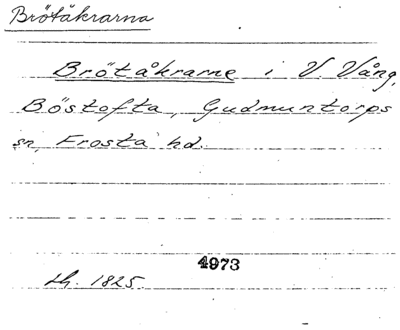 Brötåkrarna
Brötåkrarne i V. Vång,
Böstofta, Gudmuntorps
sn, Frosta hd.
4973
Lh. 1825.